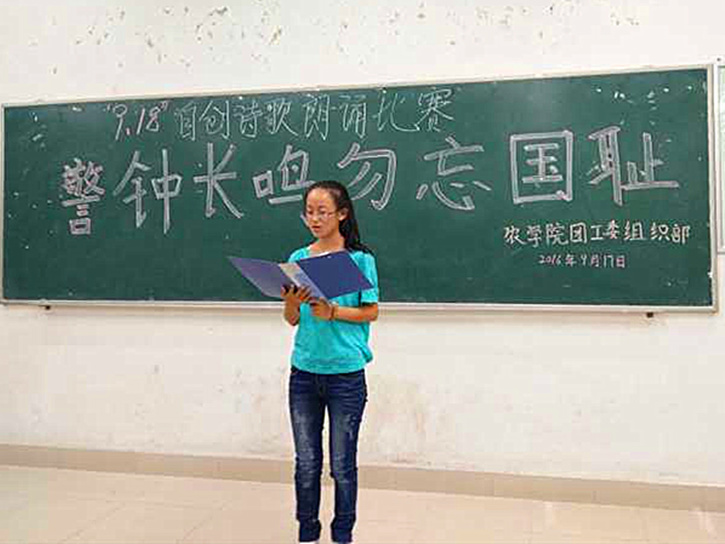 "9.18"自创诗歌朗诵比赛
警钟长鸣勿忘国耻
农学院团工委组织部
2016年9月17日